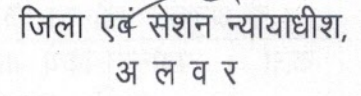 जिला एवं सेशन न्यायाधीश,
अ ल व र